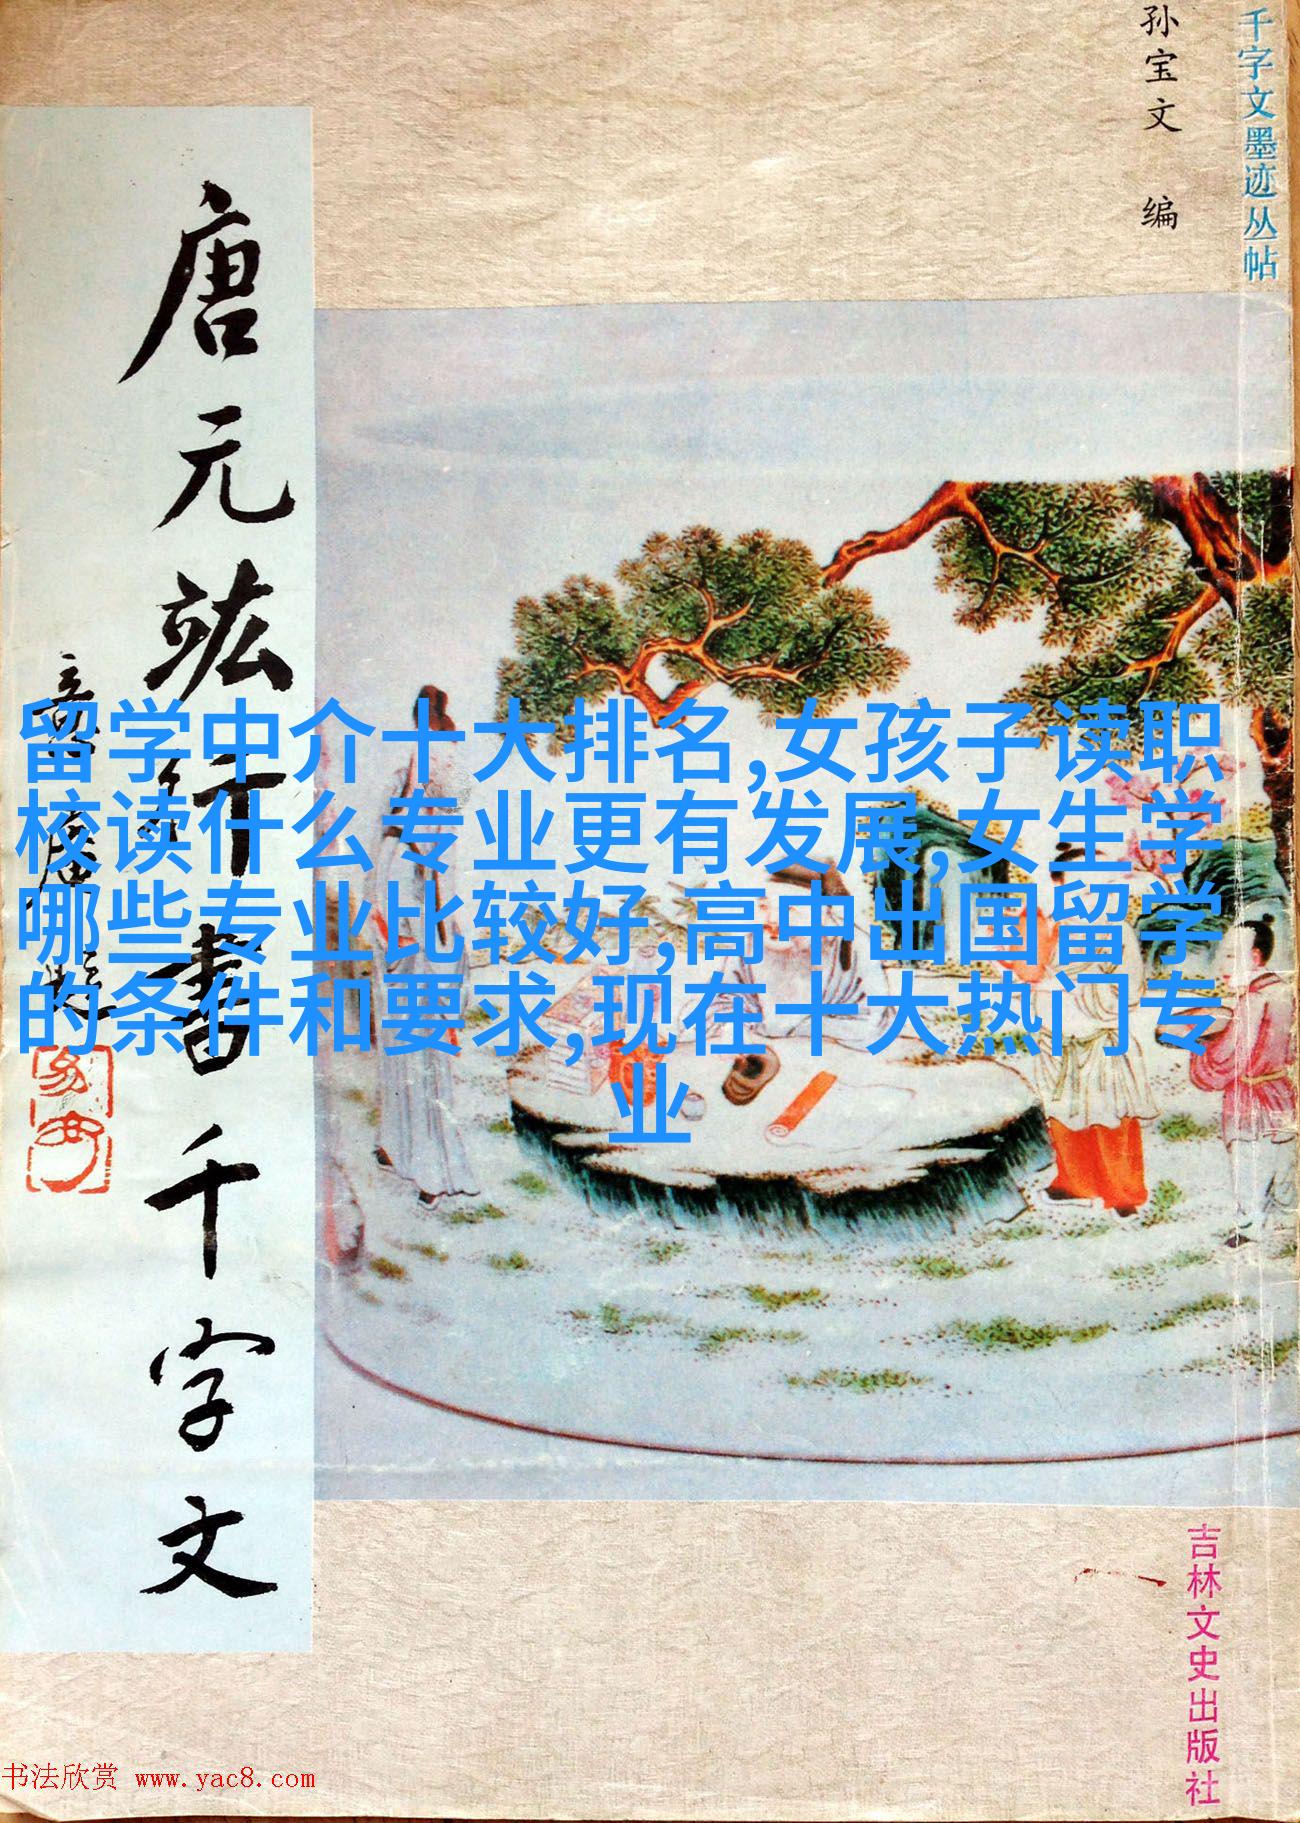 千字文墨迹丛帖
孙宝文 编
唐元竑行书千字文
留学中介十大排名,女孩子读职
校读什么专业更有发展,女生学
哪些专业比较好,高中出国留学
的条件和要求,现在十大热门专
业
吉林文史出版社
书法欣赏 www.yac8.com